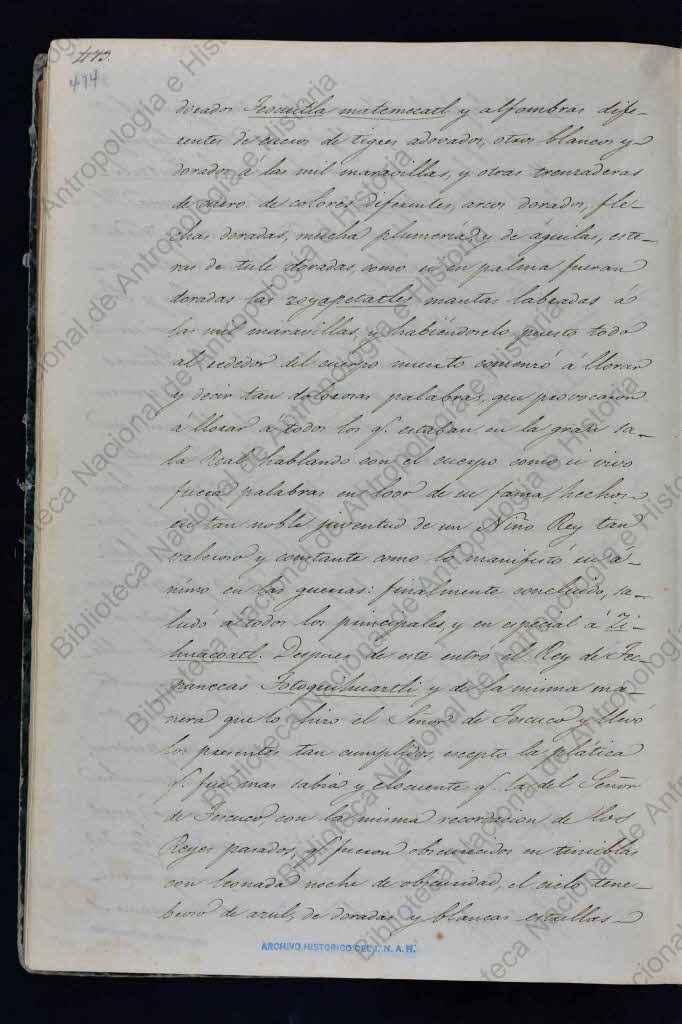 473.
474
dorados Teocuitla matemecatl y alfombras dife-
rentes de cueros de tigres adovados, otros blancos y
dorados á las mil maravillas, y otras trenzaderas
de cuero de colores diferentes, arcos dorados, fle-
chas doradas, mucha plumería, y de águilas, este-
ras de tule doradas, como si en palma fueran
doradas las zoyapetatles mantas labradas á
las mil maravillas, y habiéndoselo puesto todo
al rededor del cuerpo muerto comenzó á llorar
y decir tan dolorosas palabras, que provocaron
á llorar a todos los q.e estaban en la gran sa-
la Real, hablando con el cuerpo como si vivo
fuera palabras en loor de su fama, hechos
en tan noble juventud de un Niño Rey tan
valeroso y constante como lo manifestó su á-
nimo en las guerras: finalmente concluido, sa-
ludó a todos los principales, y en especial á Zi-
huacoatl. Despues de este entró el Rey de Tec-
panecas Totoquihuaztli y de la misma ma-
nera que lo hizo el Señor de Tescuco y llevó
los presentes tan cumplidos, escepto la plática
q.e fue mas sabia y elocuente q.e la del Señor
de Tescuco con la misma recordacion de los
Reyes pasados, q.e fueron obscurecidos en tinieblas
con leonada noche de obscuridad, el cielo tene-
broso de azul, de doradas y blancas estrellas
ARCHIVO HISTORICO DEL I. N. A. H.
Biblioteca Nacional de Antropología e Historia